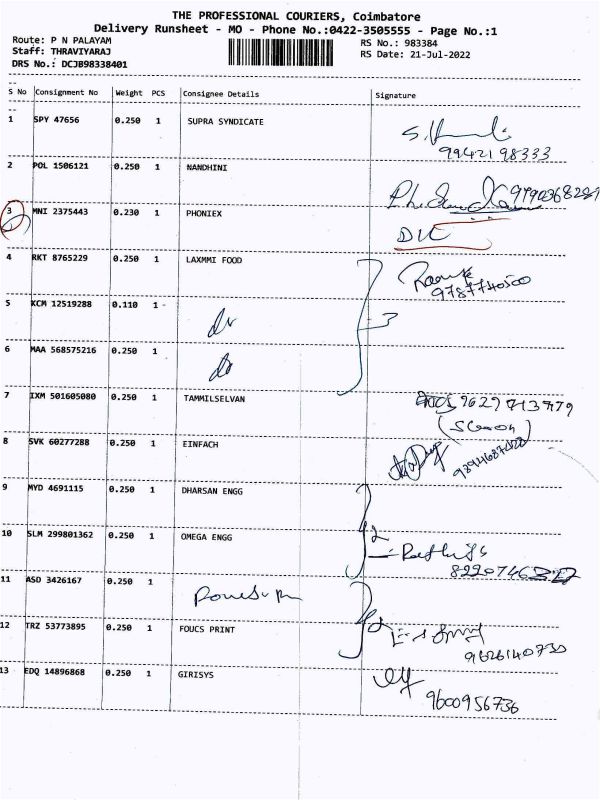 THE PROFESSIONAL COURIERS, Coimbatore
Delivery Runsheet - MO - Phone No.:0422-3505555 - Page No.:1
Route: P N PALAYAM RS No.: 983384
Staff: THRAVIYARAJ RS Date: 21-Jul-2022
DRS No.: DCJB98338401
S No Consignment No Weight PCS Consignee Details Signature
1 SPY 47656 0.250 1 SUPRA SYNDICATE
9942198333
2 POL 1506121 0.250 1 NANDHINI
3 MNI 2375443 0.230 1 PHONIEX
4 RKT 8765229 0.250 1 LAXMMI FOOD
9787740500
5 KCM 12519288 0.110 1 - 3
6 MAA 568575216 0.250 1
7 IXM 501605080 0.250 1 TAMMILSELVAN
8 SVK 60277288 0.250 1 EINFACH
9 MYD 4691115 0.250 1 DHARSAN ENGG
10 SLM 299801362 0.250 1 OMEGA ENGG 2
11 ASD 3426167 0.250 1
12 TRZ 53773895 0.250 1 FOUCS PRINT 2
9626140730
13 EDQ 14896868 0.250 1 GIRISYS
9600956736